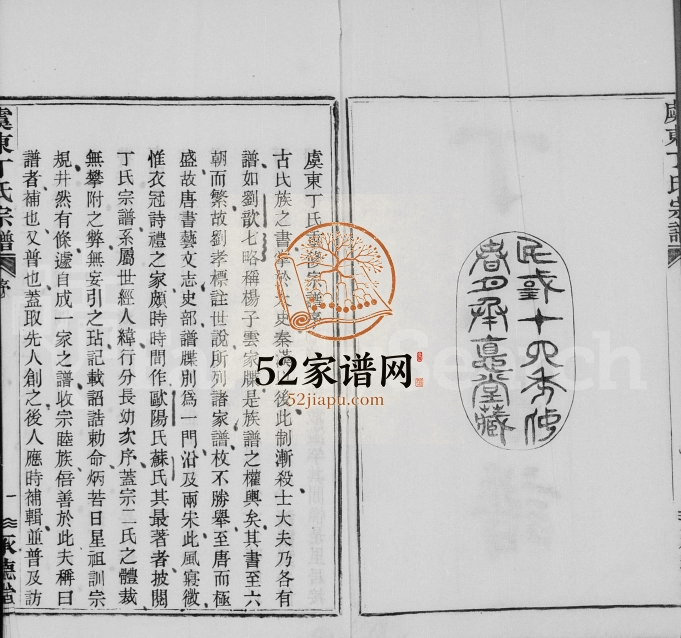 虞東丁氏宗譜
民或十四年仲
春月承悳堂藏
虞東丁氏重修宗譜序
古氏族之書掌於太史秦漢以後此制漸殺士大夫乃各有
譜如劉歆七略稱楊子雲家牒是族譜之權輿矣其書至六
朝而繁故劉孝標註世說所列諸家譜枚不勝舉至唐而極
盛故唐書藝文志史部譜牒別爲一門沿及兩宋此風寖微
惟衣冠詩禮之家頗時時間作歐陽氏蘇氏其最著者披閱
丁氏宗譜系屬世經人緯行分長幼次序蓋宗二氏之體裁
無攀附之弊無妄引之玷記載詔誥勅命炳若日星祖訓宗
規井然有條遽自成一家之譜收宗睦族俉善於此夫稱曰
譜者補也又普也蓋取先人創之後人應時補輯並普及訪
虞東丁氏宗譜 序 一 承德堂
52家谱网
52jiapu.com